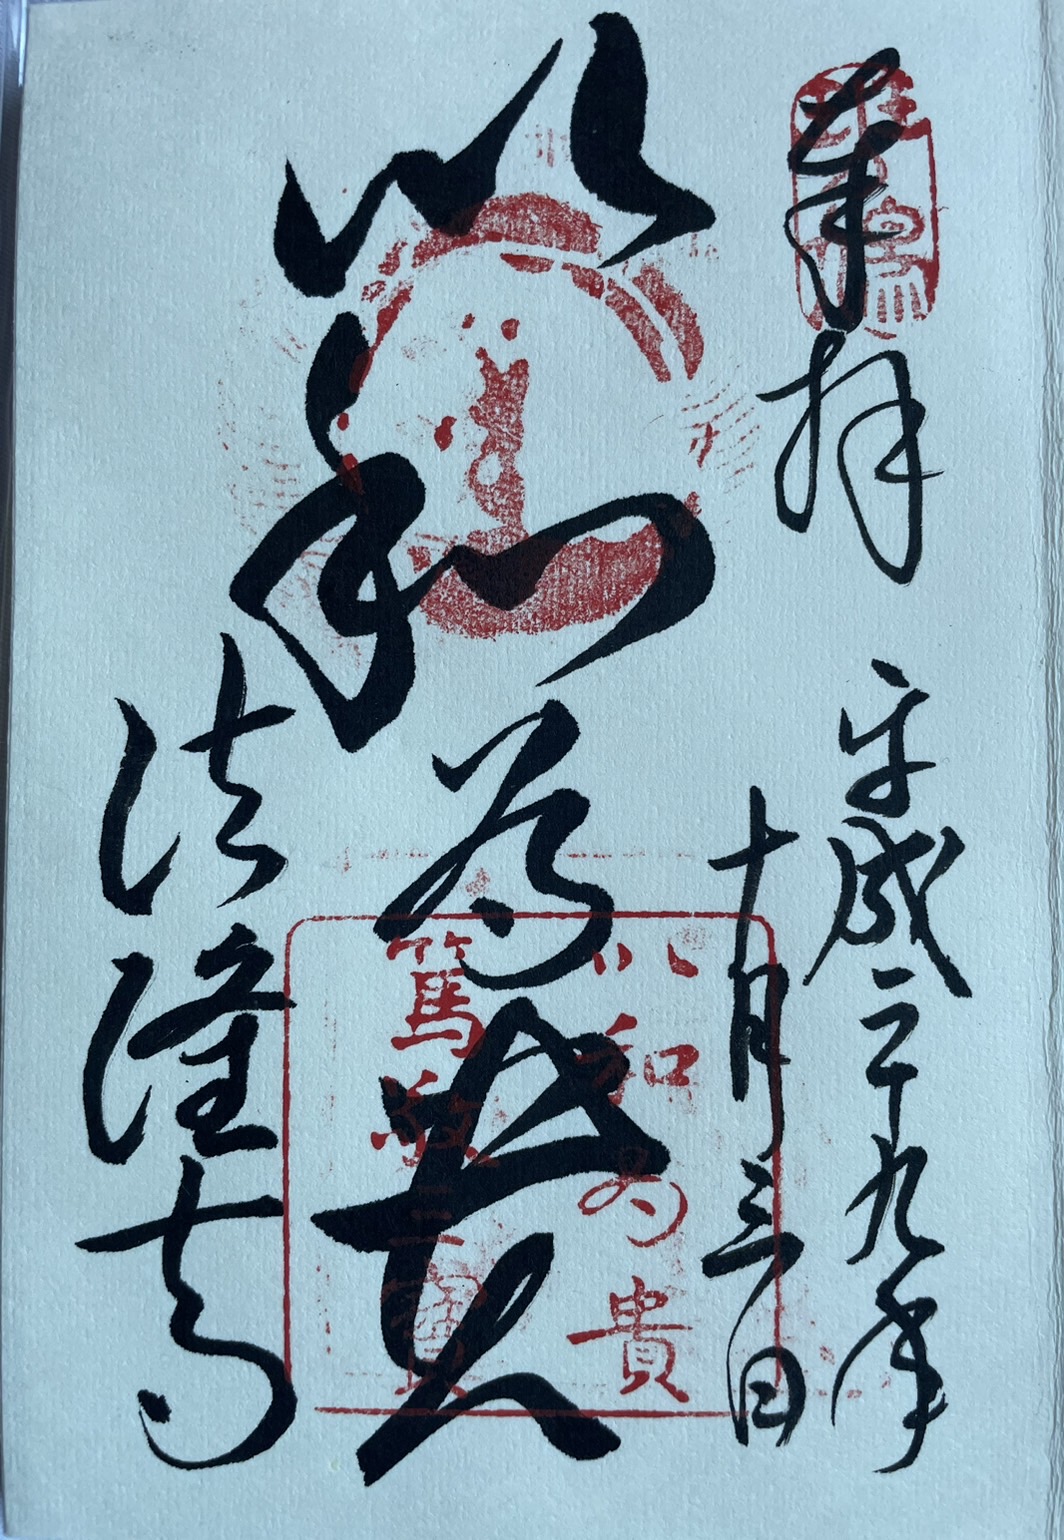 奉拝
平成二十九年
十月三日
以和為貴
法隆寺
以和為貴
篤敬三寶